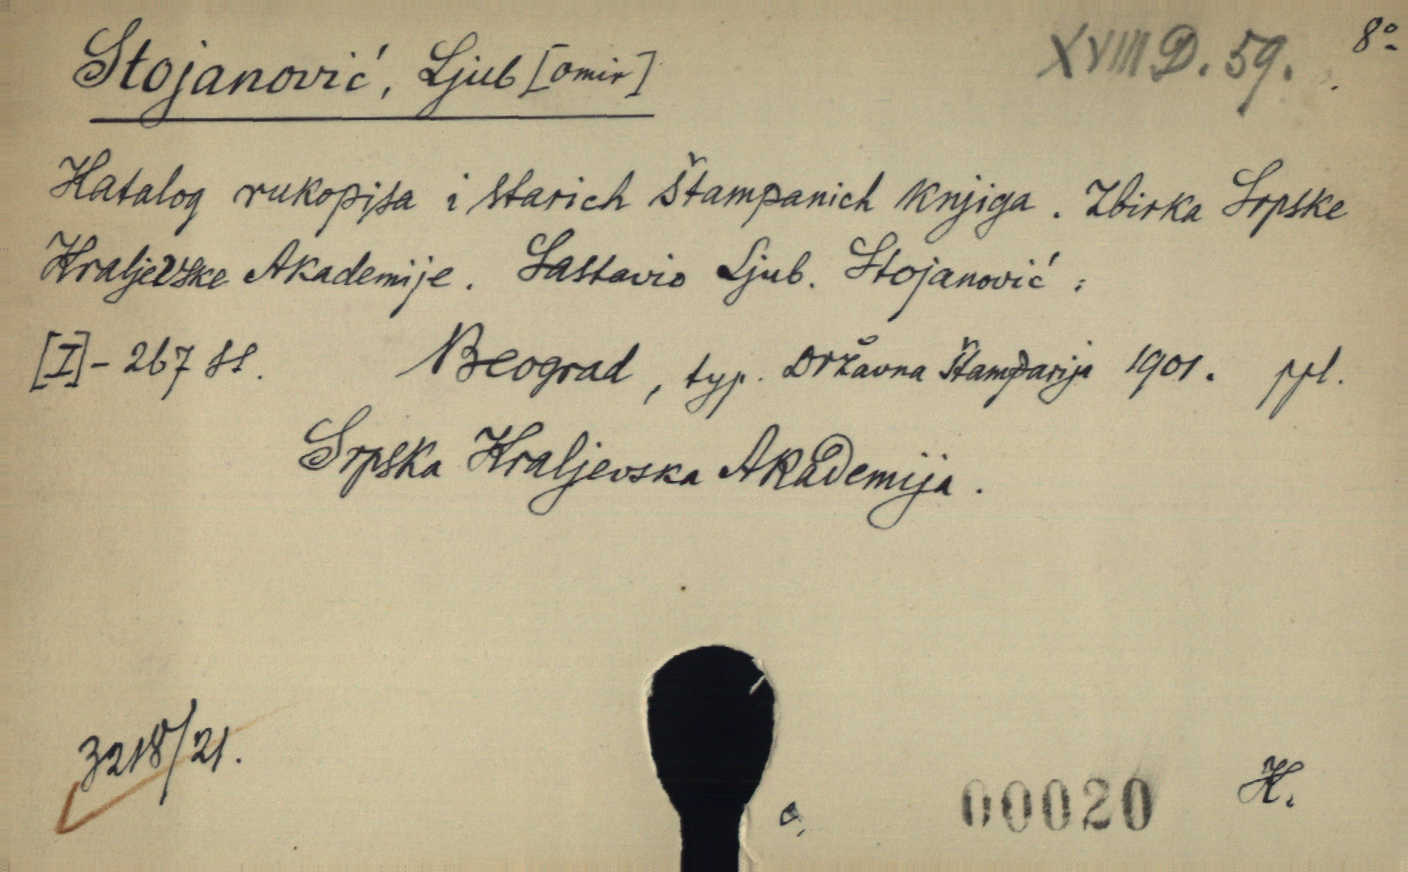 Stojanović, Ljub[omir]
XVIII D. 59.
8°
Katalog rukopisa i starich štampanich knjiga. Zbirka Srpske
Kraljevske Akademije. Sastavio Ljub. Stojanović:
[I]-267 ss.
Beograd, typ. Državna Štamparija 1901. ppl.
Srpska Kraljevska Akademija.
3218/21.
00020
H.